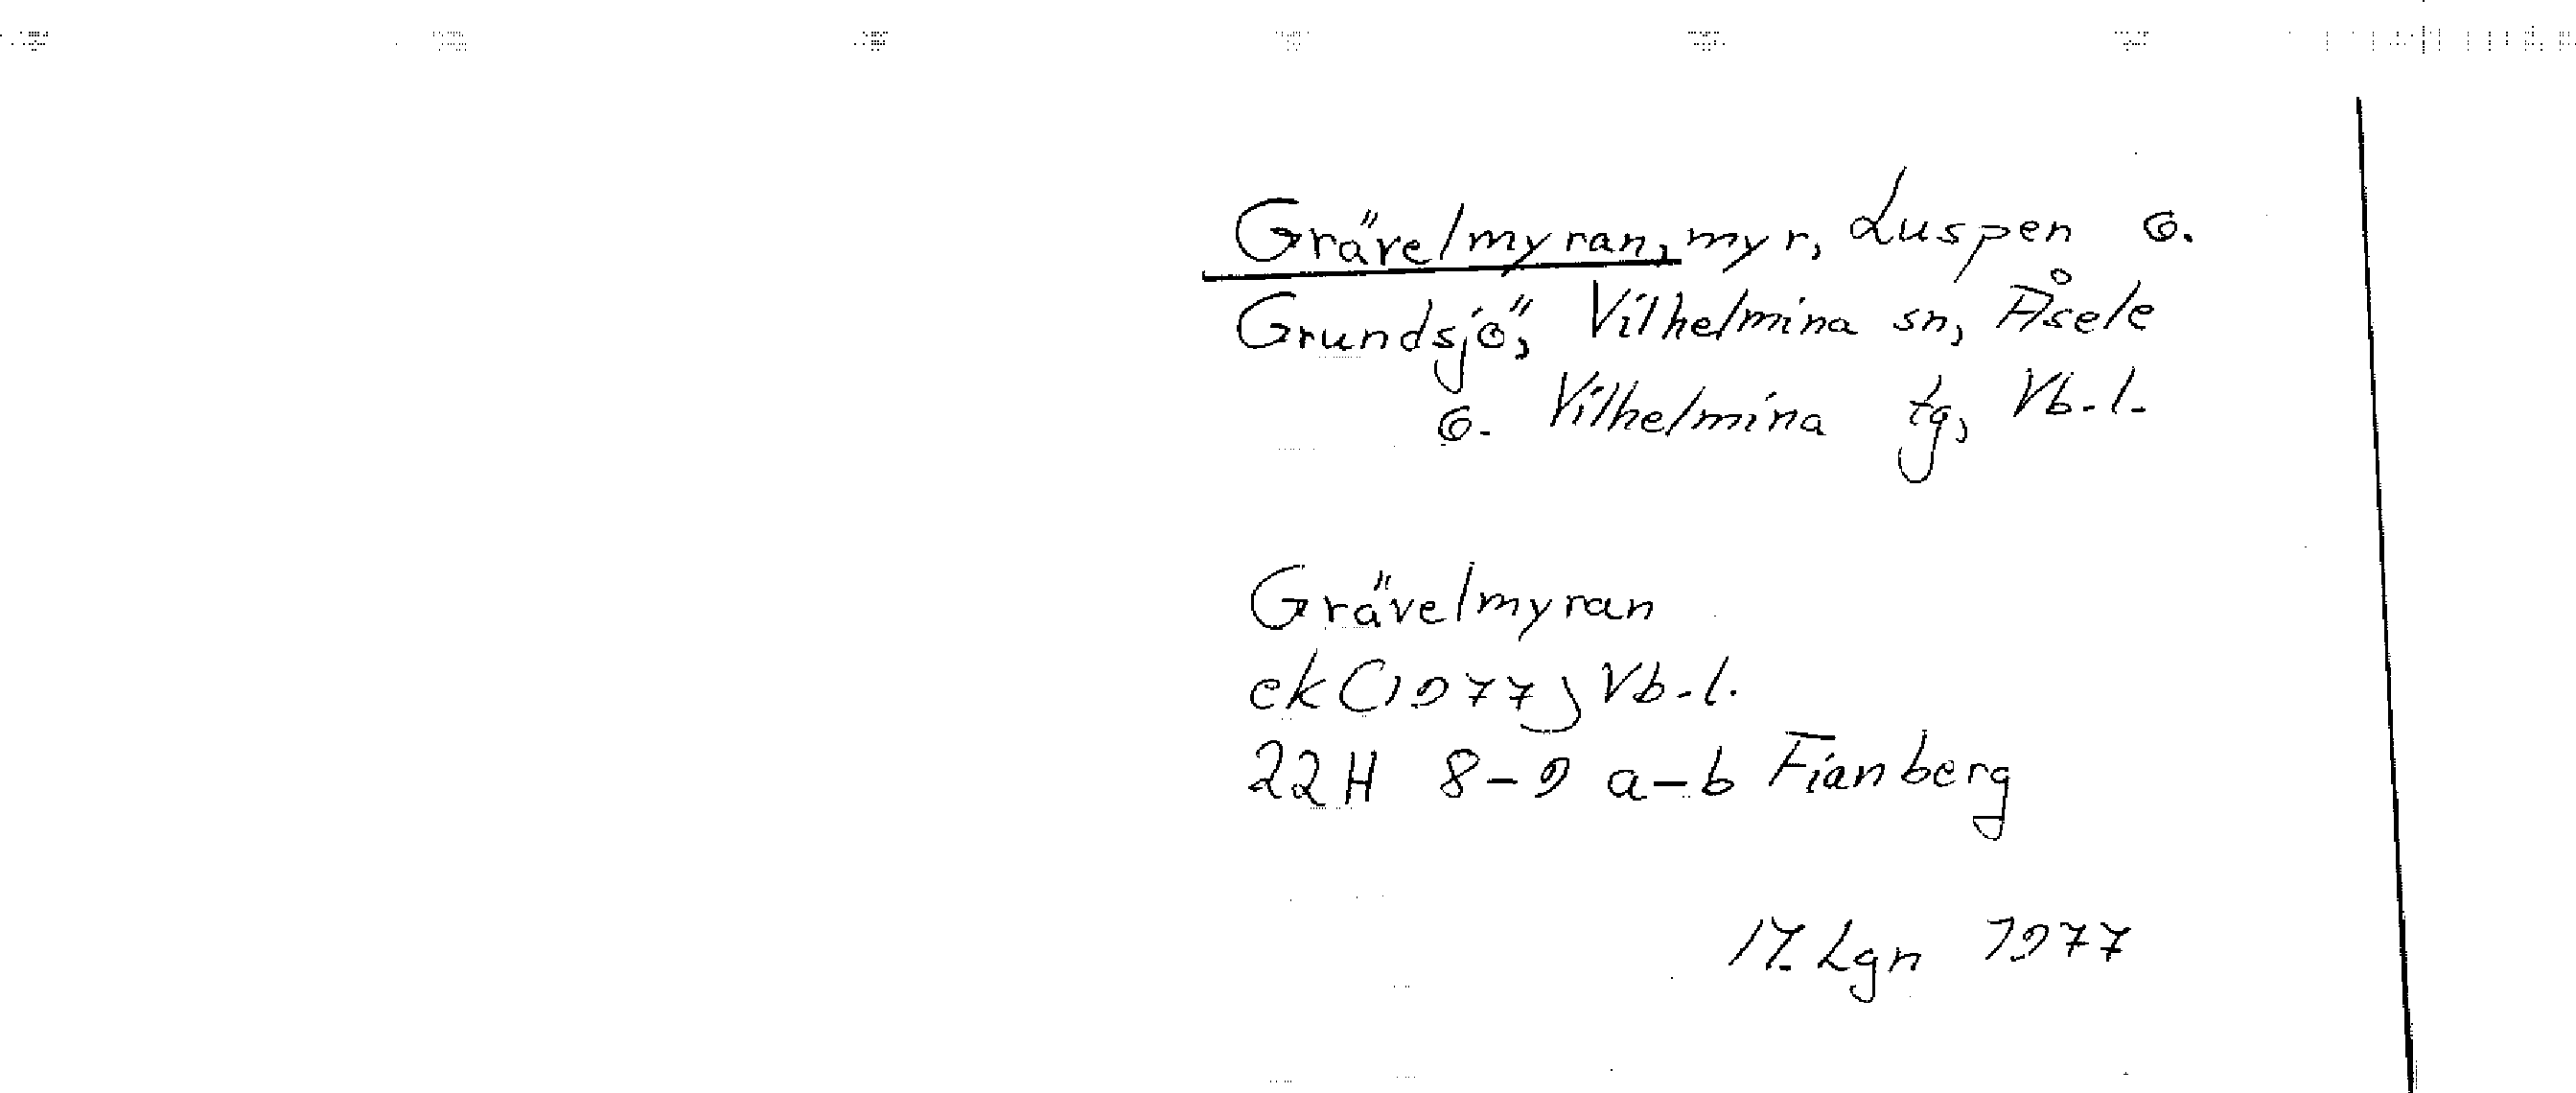 Grävelmyran, myr, Luspen o.
Grundsjö, Vilhelmina sn, Åsele
o. Vilhelmina tg, Vb.l.
Grävelmyran
ek (1977) Vb.l.
22H 8-9 a-b Fianberg
Lgn 1977